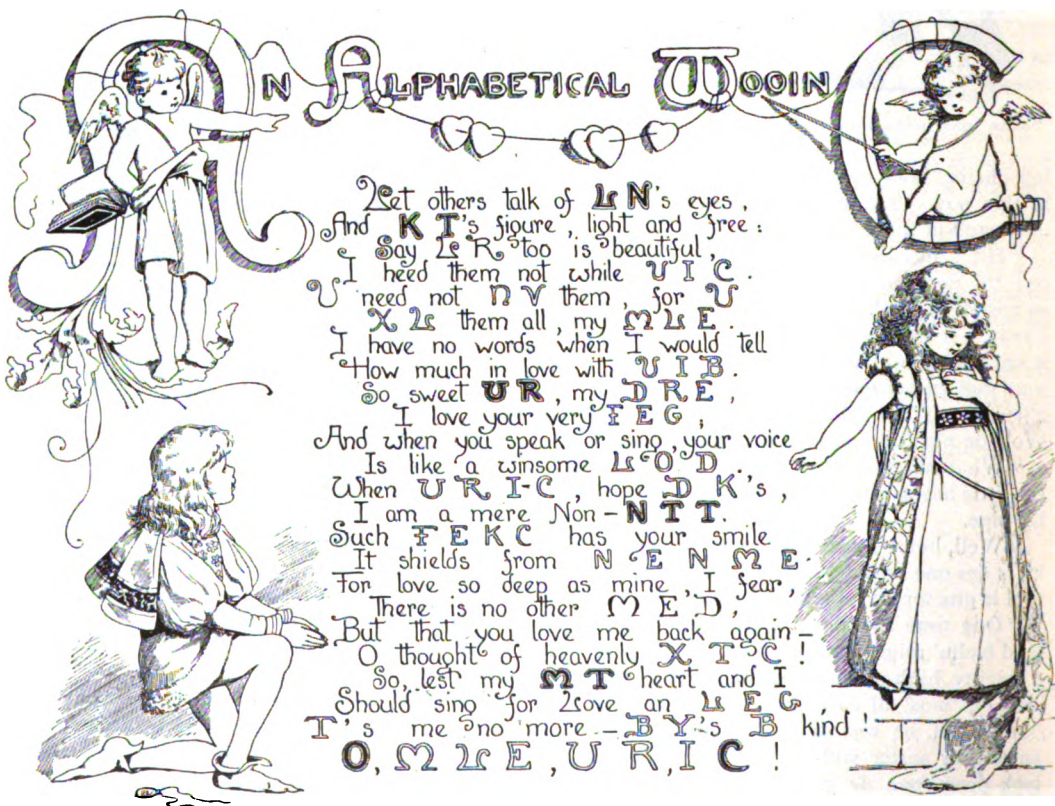 An Alphabetical Wooing
Let others talk of L N's eyes,
And K T's figure, light and free:
Say L R too is beautiful,
I heed them not while U I C.
U need not N V them, for U
X L them all, my M L E.
I have no words when I would tell
How much in love with U I B.
So sweet U R, my D R E,
I love your very F E G;
And when you speak or sing, your voice
Is like a winsome L O D.
When U R I-C, hope D K's,
I am a mere Non-N T T.
Such F E K C has your smile
It shields from N E N M E.
For love so deep as mine, I fear,
There is no other M E D,
But that you love me back again—
O thought of heavenly X T C!
So, lest my M T heart and I
Should sing for Love an L E G
T's me no more—B Y's B kind!
O, M L E, U R, I C!
Well, b